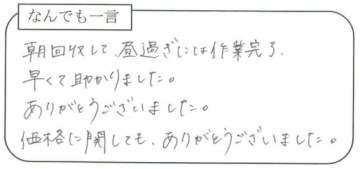 なんでも一言
朝回収して、昼過ぎには作業完了。
早くて助かりました。
ありがとうございました。
価格に関しても、ありがとうございました。